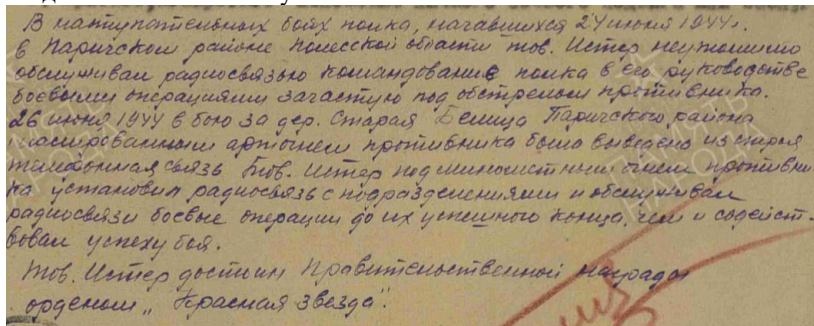 В наступательных боях полка, начавшихся 24 июня 1944 г.
в Паричском районе Полесской области тов. Истер неутомимо
обслуживал радиосвязью командование полка в его руководстве
боевыми операциями зачастую под обстрелом противника.
26 июня 1944 в бою за дер. Старая Белица Паричского района
массированным артогнем противника была выведена из строя
телефонная связь. Тов. Истер под минометным огнем противни-
ка установил радиосвязь с подразделениями и обслуживал
радиосвязи боевые операции до их успешного конца, чем и содейст-
вовал успеху боя.
Тов. Истер достоин Правительственной награды
орденом „Красная звезда".